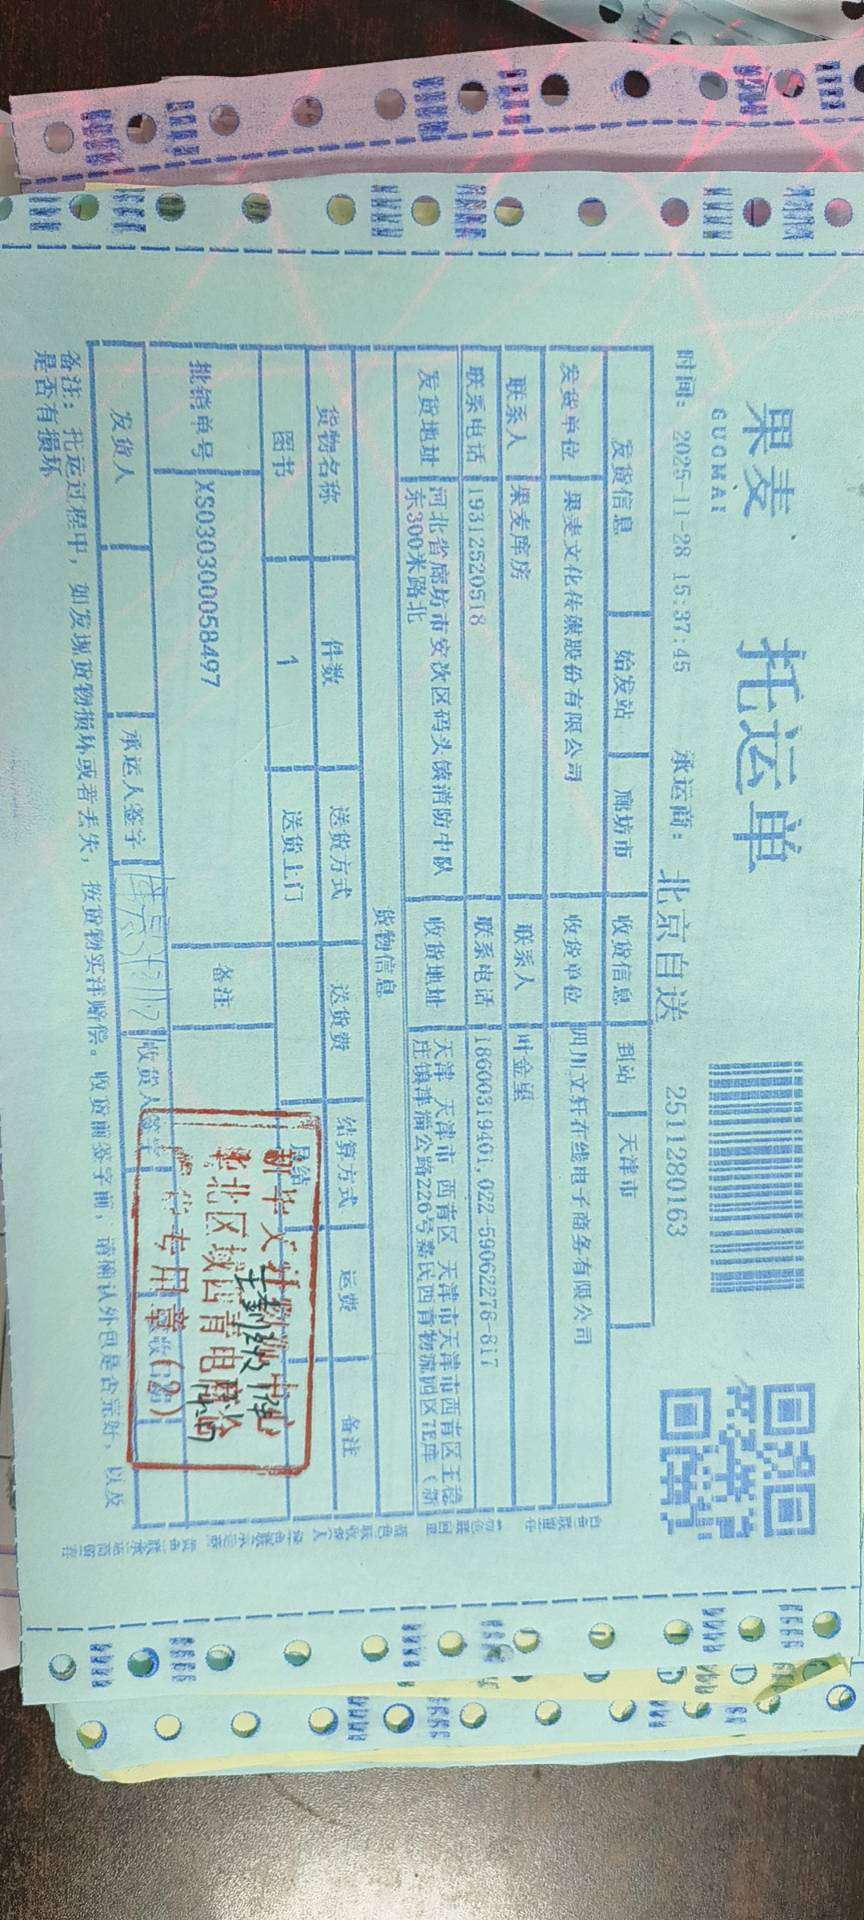 果麦
GUOMAI
托运单
时间：2025-11-28 15:37:45 承运商：北京自送 2511280163
发货信息 始发站 廊坊市 收货信息 到站 天津市
发货单位 果麦文化传媒股份有限公司 收货单位 四川文轩在线电子商务有限公司
联系人 果麦库房 联系人 叶金星
联系电话 19312520518 联系电话 18600319401,022-59062276-817
发货地址 河北省廊坊市安次区码头镇消防中队东300米路北 收货地址 天津 天津市 西青区 天津市天津市西青区王稳庄镇津淄公路226号嘉民西青物流园区7E库（新
货物信息
货物名称 件数 送货方式 送货费 结算方式 运费 备注
图书 1 送货上门 月结
批销单号 XS030300058497 备注
发货人 承运人签字 收货人签字
备注：托运过程中，如发现货物损坏或者丢失，按货物实洋赔偿。收货前签字前，请确认外包是否完好，以及
是否有损坏
新华文轩
华北区域西青电商
专用章（2）